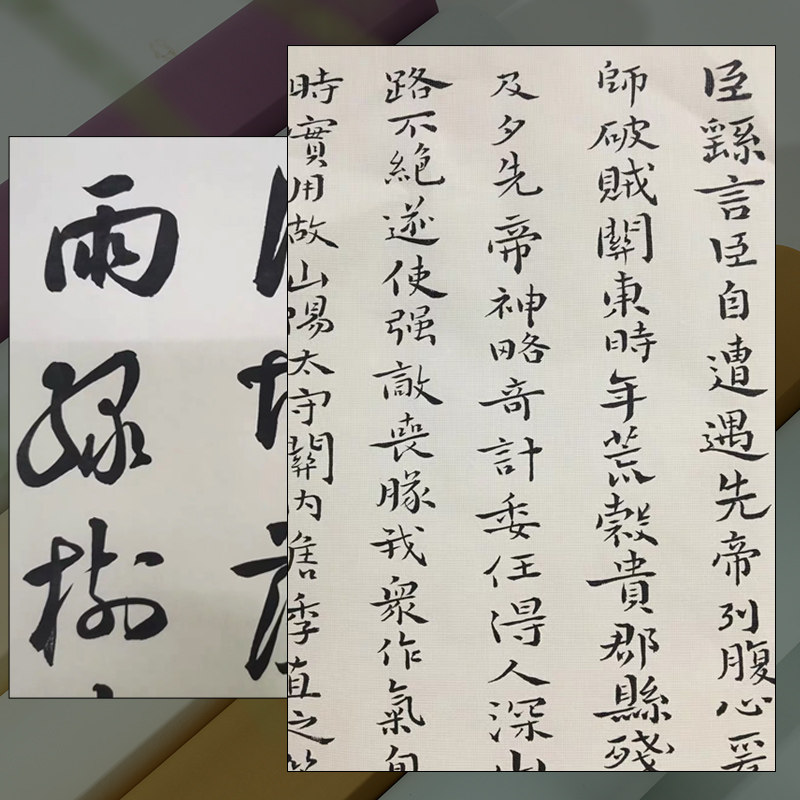 臣繇言臣自遭遇先帝列腹心爰
師破賊關東時年荒穀貴郡縣殘
及夕先帝神略奇計委任得人深山
路不絕遂使强敵喪膝我衆作氣旬
時實用故山陽太守關內侯季直之策
雨綠樹